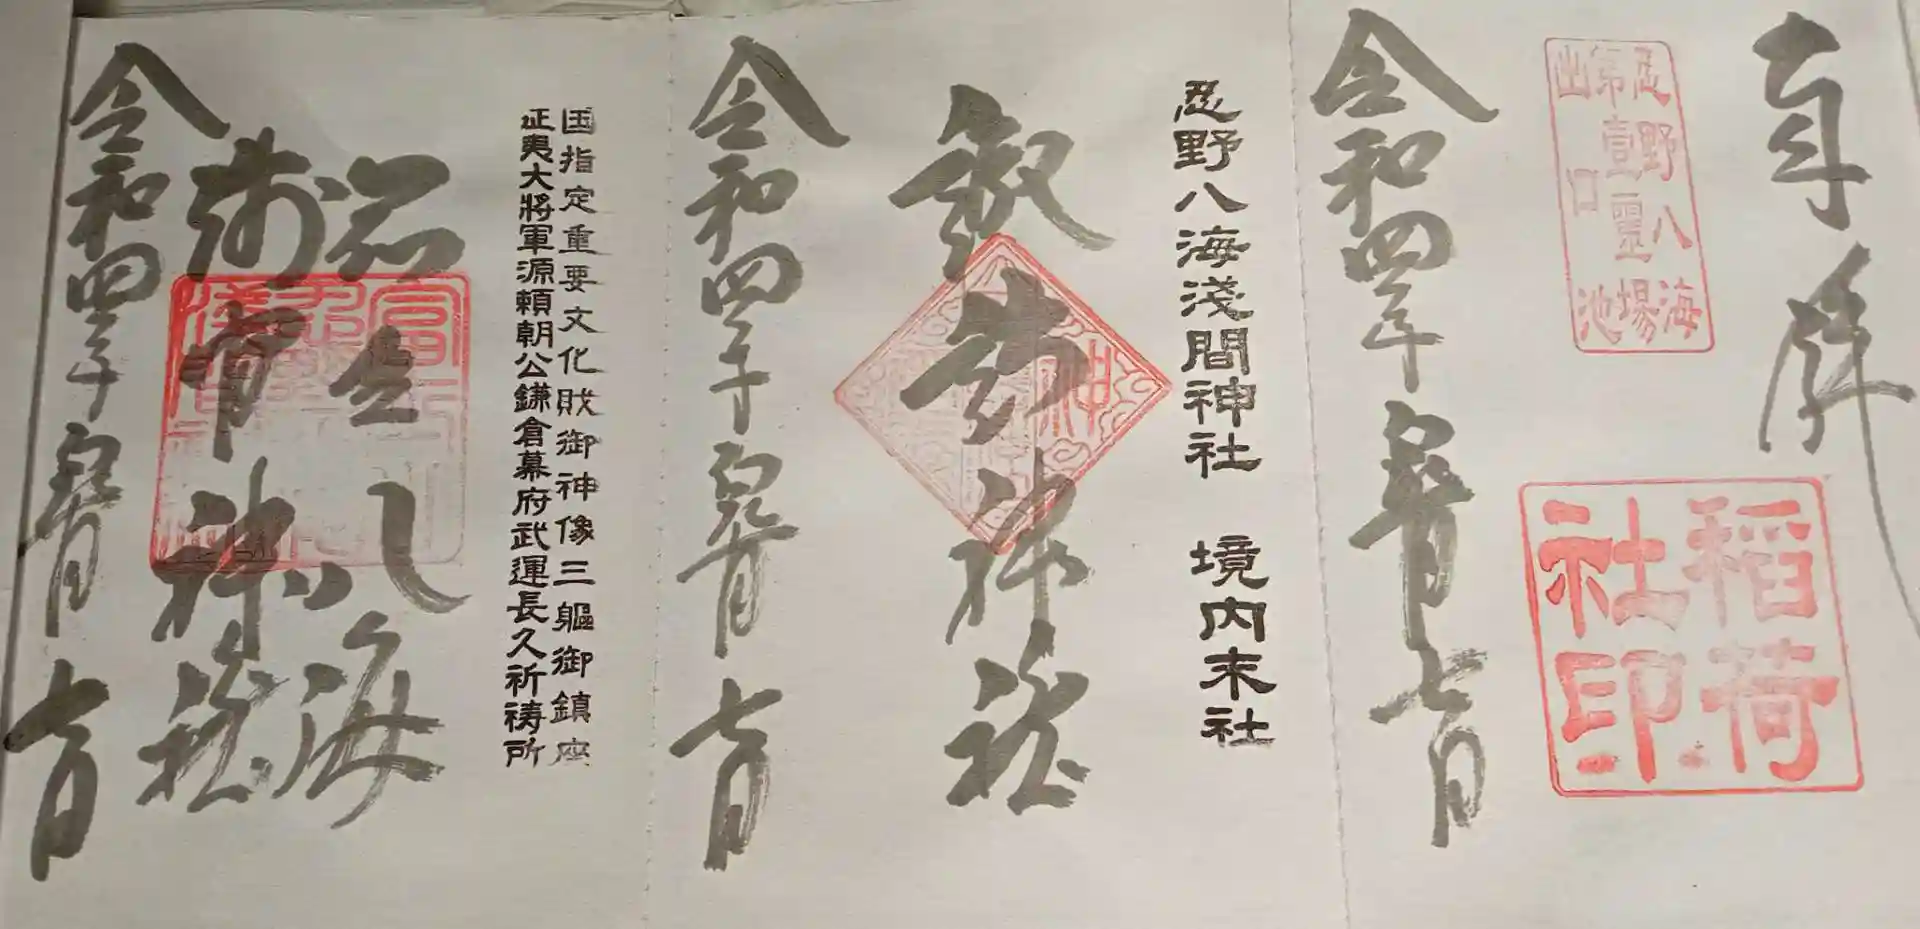 奉拝
忍野八海
第壹靈場
出口池
稲荷
社印
令和四年皐月七日
忍野八海淺間神社 境内末社
神社
令和四年皐月七日
国指定重要文化財御神像三軀御鎮座
征夷大将軍源頼朝公鎌倉幕府武運長久祈祷所
忍野八海
浅間神社
令和四年皐月七日